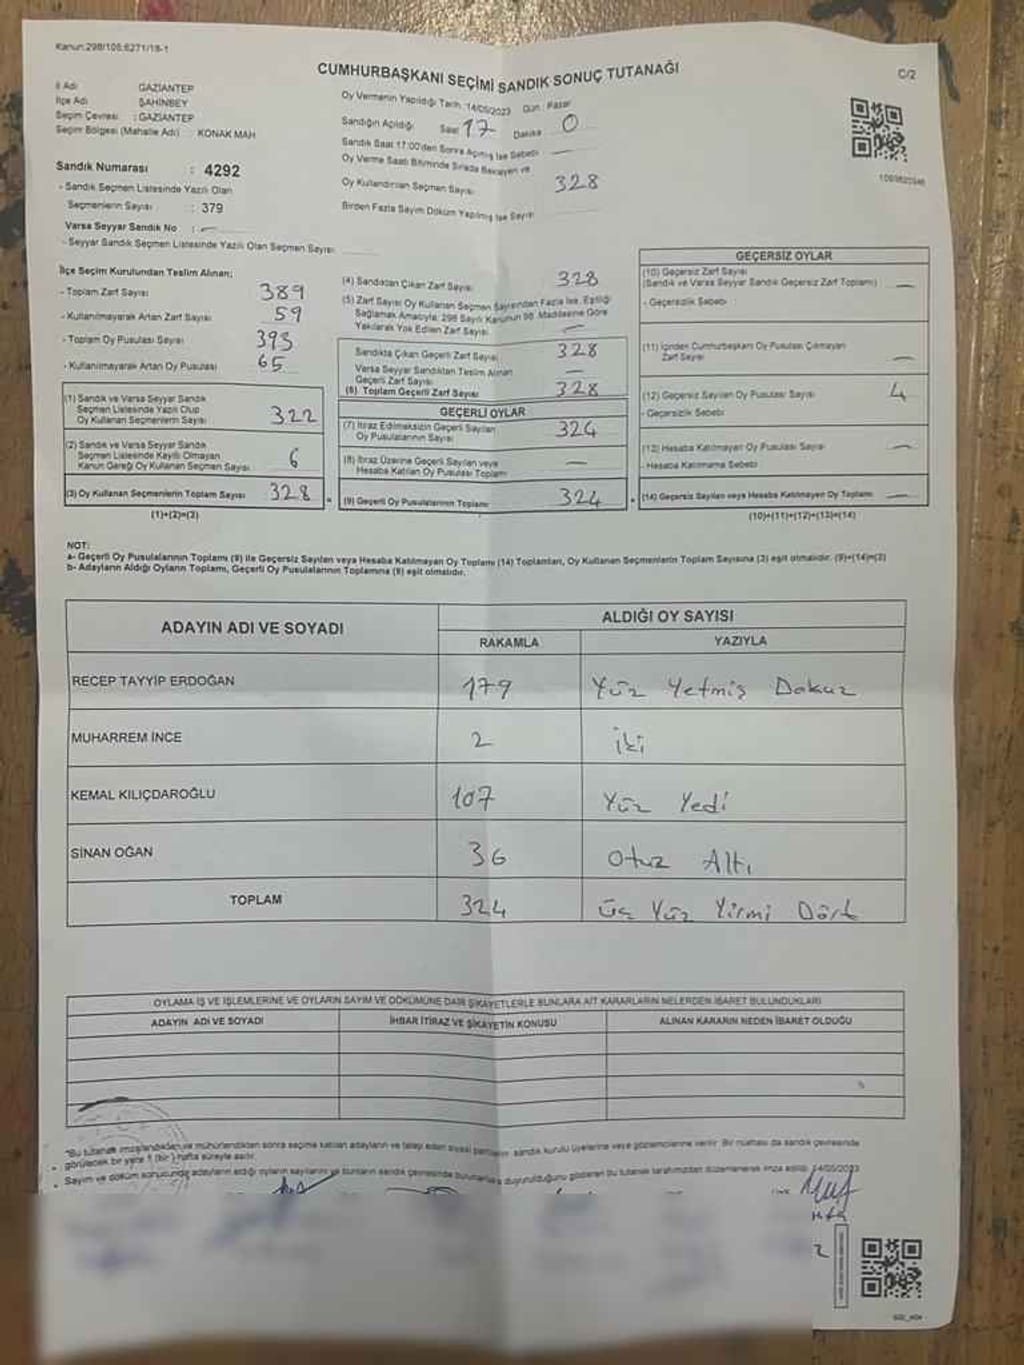 Kanun:298/105;6271/18-1
CUMHURBAŞKANI SEÇİMİ SANDIK SONUÇ TUTANAĞI
C/2
İl Adı GAZİANTEP
İlçe Adı ŞAHİNBEY
Seçim Çevresi : GAZİANTEP
Seçim Bölgesi (Mahalle Adı) : KONAK MAH
Sandık Numarası : 4292
- Sandık Seçmen Listesinde Yazılı Olan
Seçmenlerin Sayısı : 379
Varsa Seyyar Sandık No : —
- Seyyar Sandık Seçmen Listesinde Yazılı Olan Seçmen Sayısı
Oy Vermenin Yapıldığı Tarih :14/05/2023 Gün : Pazar
Sandığın Açıldığı Saat 17 Dakika 0
Sandık Saat 17:00'den Sonra Açılmış İse Sebebi —
Oy Verme Saati Bitiminde Sırada Bekleyen ve
Oy Kullandırılan Seçmen Sayısı 328
Birden Fazla Sayım Döküm Yapılmış İse Sayısı
İlçe Seçim Kurulundan Teslim Alınan;
- Toplam Zarf Sayısı 389
- Kullanılmayarak Artan Zarf Sayısı 59
- Toplam Oy Pusulası Sayısı 393
- Kullanılmayarak Artan Oy Pusulası 65
(1) Sandık ve Varsa Seyyar Sandık
Seçmen Listesinde Yazılı Olup
Oy Kullanan Seçmenlerin Sayısı 322
(2) Sandık ve Varsa Seyyar Sandık
Seçmen Listesinde Kayıtlı Olmayan
Kanun Gereği Oy Kullanan Seçmen Sayısı 6
(3) Oy Kullanan Seçmenlerin Toplam Sayısı 328
(1)+(2)=(3)
(4) Sandıkdan Çıkan Zarf Sayısı 328
(5) Zarf Sayısı Oy Kullanan Seçmen Sayısından Fazla İse, Eşitliği
Sağlamak Amacıyla; 298 Sayılı Kanunun 98. Maddesine Göre
Yakılarak Yok Edilen Zarf Sayısı —
Sandıkta Çıkan Geçerli Zarf Sayısı 328
Varsa Seyyar Sandıktan Teslim Alınan
Geçerli Zarf Sayısı —
(6) Toplam Geçerli Zarf Sayısı 328
GEÇERLİ OYLAR
(7) İtiraz Edilmeksizin Geçerli Sayılan
Oy Pusulalarının Sayısı 324
(8) İtiraz Üzerine Geçerli Sayılan veya
Hesaba Katılan Oy Pusulası Toplamı —
(9) Geçerli Oy Pusulalarının Toplamı 324
GEÇERSİZ OYLAR
(10) Geçersiz Zarf Sayısı
(Sandık ve Varsa Seyyar Sandık Geçersiz Zarf Toplamı) —
- Geçersizlik Sebebi
(11) İçinden Cumhurbaşkanı Oy Pusulası Çıkmayan
Zarf Sayısı —
(12) Geçersiz Sayılan Oy Pusulası Sayısı 4
- Geçersizlik Sebebi
(13) Hesaba Katılmayan Oy Pusulası Sayısı —
- Hesaba Katılmama Sebebi
(14) Geçersiz Sayılan veya Hesaba Katılmayan Oy Toplamı —
(10)+(11)+(12)+(13)=(14)
NOT:
a- Geçerli Oy Pusulalarının Toplamı (9) ile Geçersiz Sayılan veya Hesaba Katılmayan Oy Toplamı (14) Toplamları, Oy Kullanan Seçmenlerin Toplam Sayısına (3) eşit olmalıdır. (9)+(14)=(3)
b- Adayların Aldığı Oyların Toplamı, Geçerli Oy Pusulalarının Toplamına (9) eşit olmalıdır.
ADAYIN ADI VE SOYADI ALDIĞI OY SAYISI
RAKAMLA YAZIYLA
RECEP TAYYİP ERDOĞAN 179 Yüz Yetmiş Dokuz
MUHARREM İNCE 2 iki
KEMAL KILIÇDAROĞLU 107 Yüz Yedi
SİNAN OĞAN 36 Otuz Altı
TOPLAM 324 üç Yüz Yirmi Dört
OYLAMA İŞ VE İŞLEMLERİNE VE OYLARIN SAYIM VE DÖKÜMÜNE DAİR ŞİKAYETLERLE BUNLARA AİT KARARLARIN NELERDEN İBARET BULUNDUKLARI
ADAYIN ADI VE SOYADI İHBAR İTİRAZ VE ŞİKAYETİN KONUSU ALINAN KARARIN NEDEN İBARET OLDUĞU
*Bu tutanak imzalandıktan ve mühürlendikten sonra seçime katılan adayların ve talep eden siyasi partilerin sandık kurulu üyelerine veya gözlemcilerine verilir. Bir nüshası da sandık çevresinde
görülecek bir yere 1 (bir) hafta süreyle asılır.
Sayım ve döküm sonucunda adayların aldığı oyların sayılarını ve bunların sandık çevresinde bulunanlara duyurulduğunu gösteren bu tutanak tarafımızdan düzenlenerek imza edildi. 14/05/2023